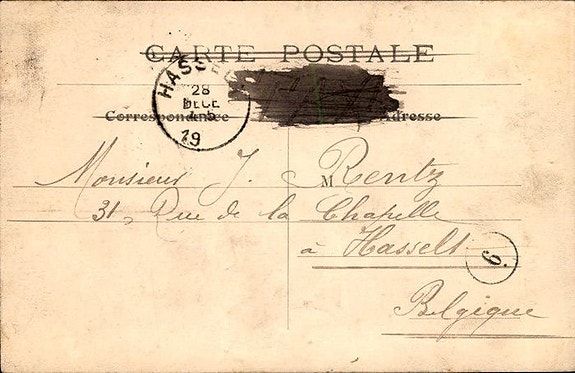 CARTE POSTALE
HASSELT
28
DECE
19
Correspondance
Adresse
Monsieur J. M Rentz
31, Rue de la Chapelle
à Hasselt
Belgique
6